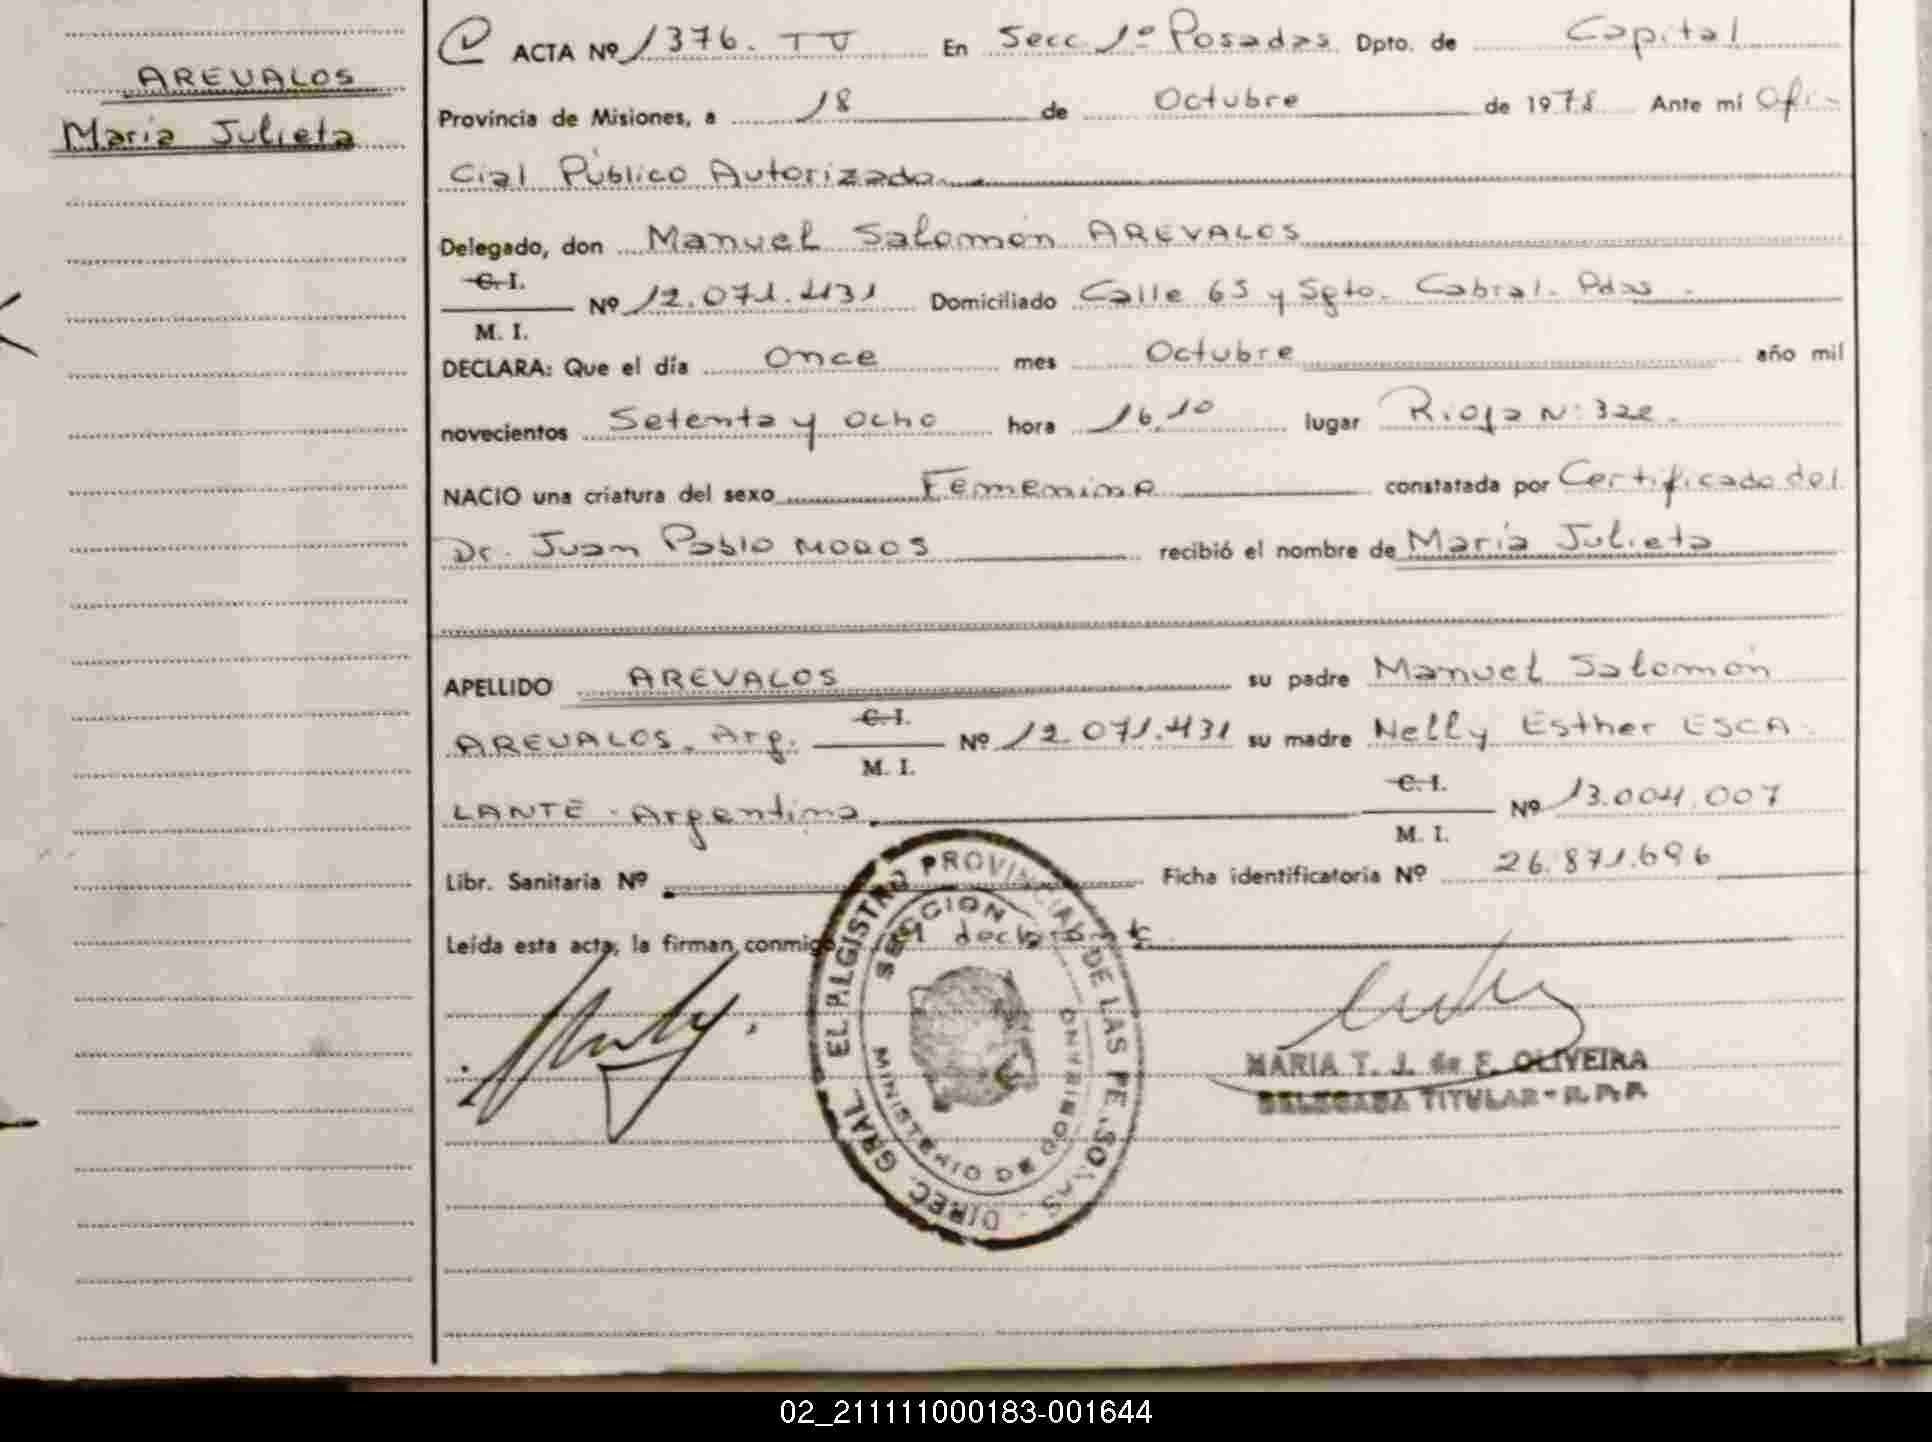 AREVALOS
María Julieta
ACTA Nº 1376. TU En Secc 1º Posadas Dpto. de Capital
Provincia de Misiones, a 18 de Octubre de 1978 Ante mí Ofi-
cial Público Autorizado.
Delegado, don Manuel Salomón AREVALOS
C. I.
M. I.
Nº 12.071.431 Domiciliado Calle 65 y Sgto. Cabral. Pdas.
DECLARA: Que el día once mes Octubre año mil
novecientos Setenta y ocho hora 16,10 lugar Rioja Nº 322.
NACIO una criatura del sexo Femenino constatada por Certificado del
Dr. Juan Pablo MODOS recibió el nombre de María Julieta
APELLIDO AREVALOS su padre Manuel Salomón
AREVALOS. Arg. C. I. M. I. Nº 12.071.431 su madre Nelly Esther ESCA
LANTE - Argentina. C. I. M. I. Nº 13.004.007
Libr. Sanitaria Nº Ficha identificatoria Nº 26.871.696
Leída esta acta, la firman conmigo
DIREC. GRAL. EL REGISTRO PROVINCIAL DE LAS PERSONAS
SECCION
MINISTERIO DE GOBIERNO
MARIA T. J. de F. OLIVEIRA
DELEGADA TITULAR - R.P.P.
02_211111000183-001644